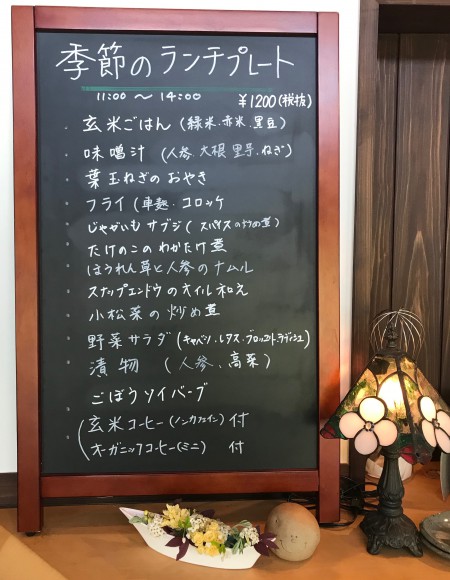 季節のランチプレート
11:00 ～ 14:00 ¥1200(税抜)
・玄米ごはん (緑米.赤米.黒豆)
・味噌汁 (人参.大根.里芋.ねぎ)
・葉玉ねぎの おやき
・フライ (車麩.コロッケ
・じゃがいもサブジ( スパイスの炒め煮)
・たけのこのわかたけ煮
・ほうれん草と人参のナムル
・スナップエンドウのオイル和え
・小松菜の炒め煮
・野菜サラダ (キャベツ.レタス.ブロッコリ.ラディシュ)
・漬物 (人参、高菜)
・ごぼうソイバーグ
(玄米コーヒー(ノンカフェイン)付
(オーガニックコーヒー(ミニ) 付